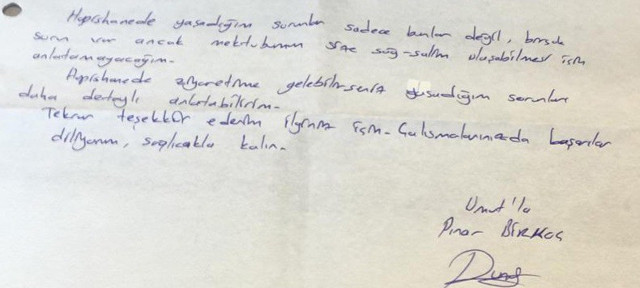 Hapishanede yaşadığım sorunlar sadece bunlar değil, birçok
sorun var ancak mektubumun size sağ-salim ulaşabilmesi için
anlatamayacağım.
Hapishanede ziyaretime gelebilirseniz yaşadığım sorunları
daha detaylı anlatabilirim.
Tekrar teşekkür ederim ilginiz için. Çalışmalarınızda başarılar
diliyorum, sağlıcakla kalın.
Umut'la
Pınar BİRKOÇ